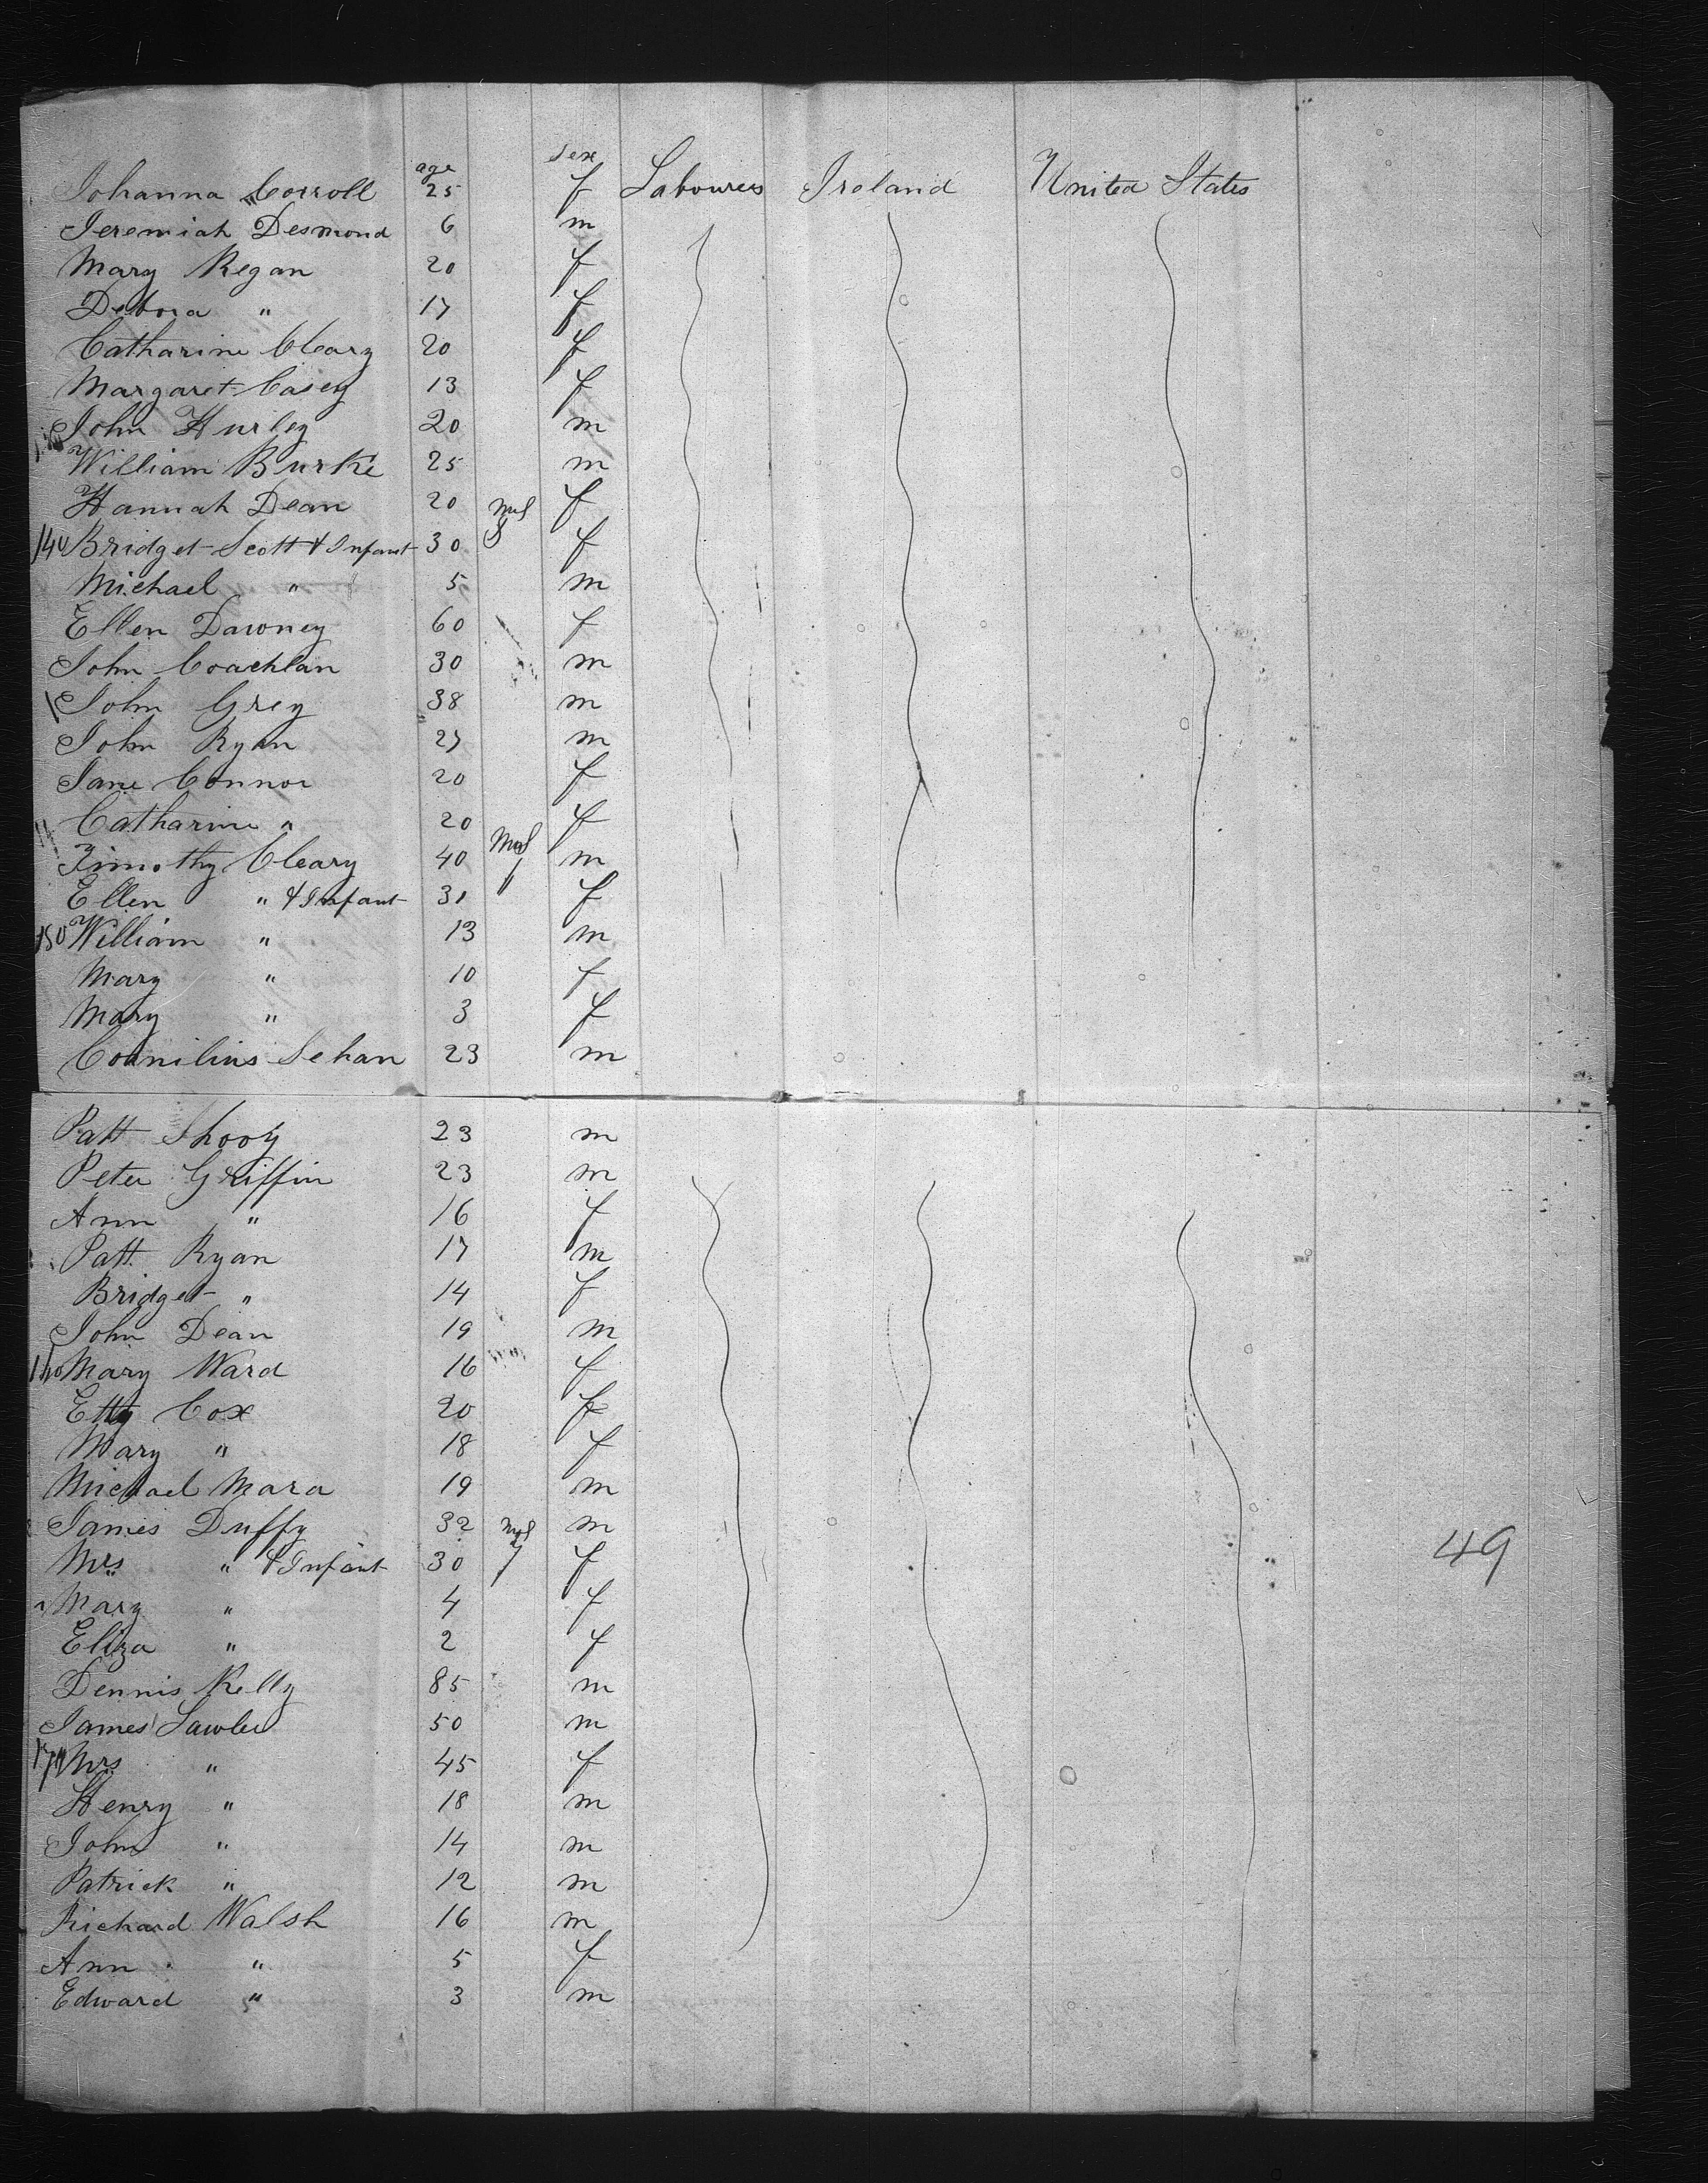 age sex
Johanna Corroll 25 f Labourers Ireland United States
Jeremiah Desmond 6 m
Mary Regan 20 f
Debora " 17 f
Catharine Cleary 20 f
Margaret Casey 13 f
John Hurley 20 m
William Burke 25 m
Hannah Dean 20 f
140 Bridget Scott & Infant 30 f
Michael " 5 m
Ellen Dawney 60 f
John Coachlan 30 m
John Grey 38 m
John Ryan 27 m
Jane Connor 20 f
Catharine " 20 f
Timothy Cleary 40 m
Ellen " & Infant 31 f
150 William " 13 m
Mary " 10 f
Mary " 3 f
Cornilius Sehan 23 m
Patt Shooy 23 m
Peter Griffin 23 m
Ann " 16 f
Patt Ryan 17 m
Bridget " 14 f
John Dean 19 m
160 Mary Ward 16 f
Etty Cox 20 f
Mary " 18 f
Michael Mara 19 m
James Duffy 32 m
Mrs " & Infant 30 f
Mary " 4 f
Eliza " 2 f
Dennis Kelly 85 m
James Lawler 50 m
170 Mrs " 45 f
Henry " 18 m
John " 14 m
Patrick " 12 m
Richard Walsh 16 m
Ann " 5 f
Edward " 3 m
49